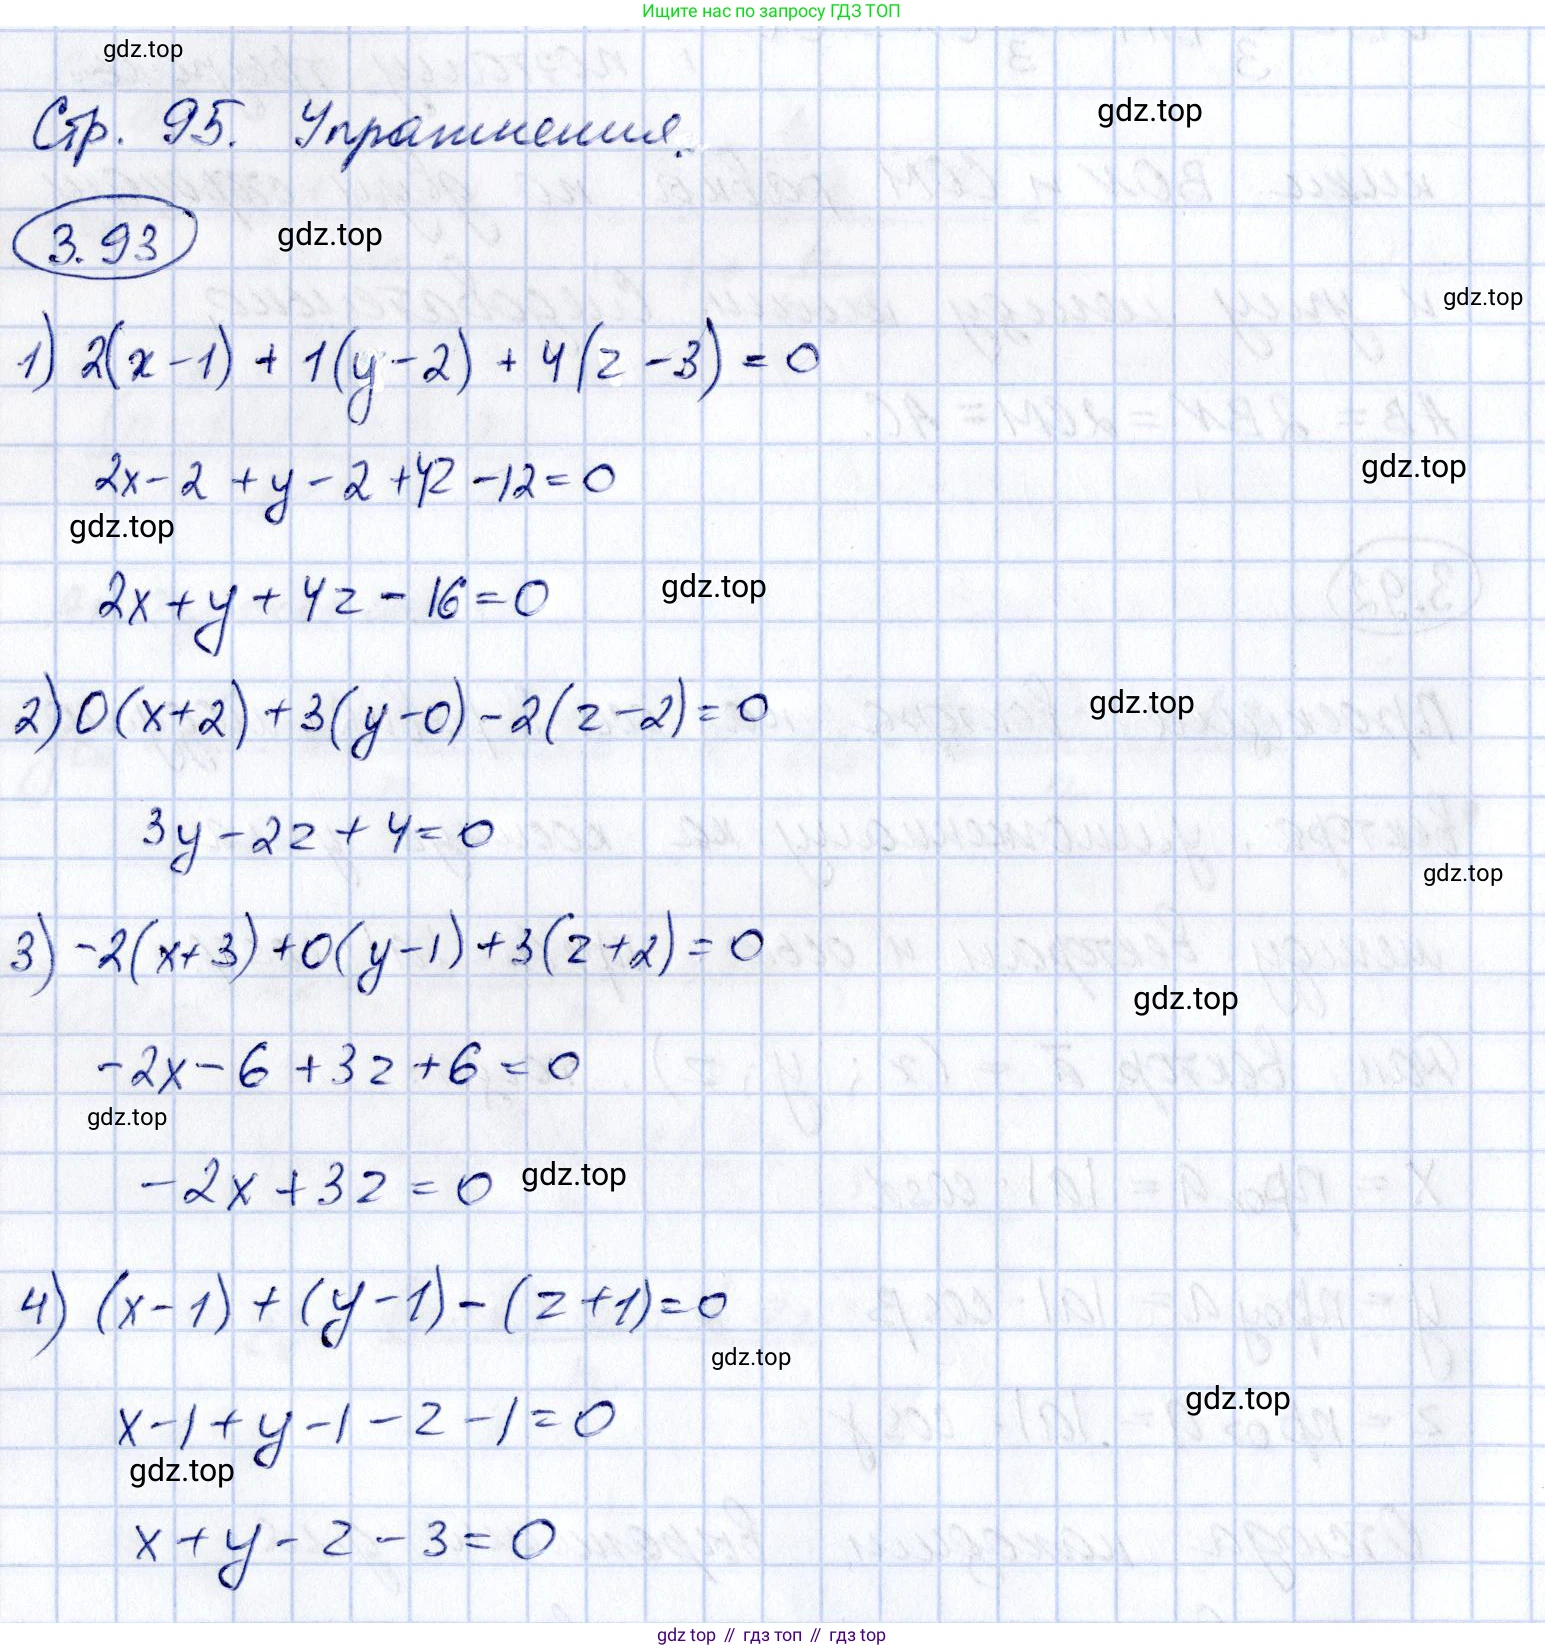 Ищите нас по запросу ГДЗ ТОП
gdz.top
Стр. 95. Упражнения.
gdz.top
3.93
gdz.top
gdz.top
1) 2(x-1) + 1(y-2) + 4(z-3) = 0
2x-2+y-2+4z-12=0
gdz.top
gdz.top
2x+y+4z-16=0
gdz.top
2) 0(x+2)+3(y-0)-2(z-2)=0
gdz.top
3y-2z+4=0
gdz.top
3) -2(x+3)+0(y-1)+3(z+2)=0
gdz.top
-2x-6+3z+6=0
gdz.top
-2x+3z=0
gdz.top
4) (x-1)+(y-1)-(z+1)=0
gdz.top
gdz.top
x-1+y-1-z-1=0
gdz.top
x+y-z-3=0
gdz top // гдз топ // гдз top